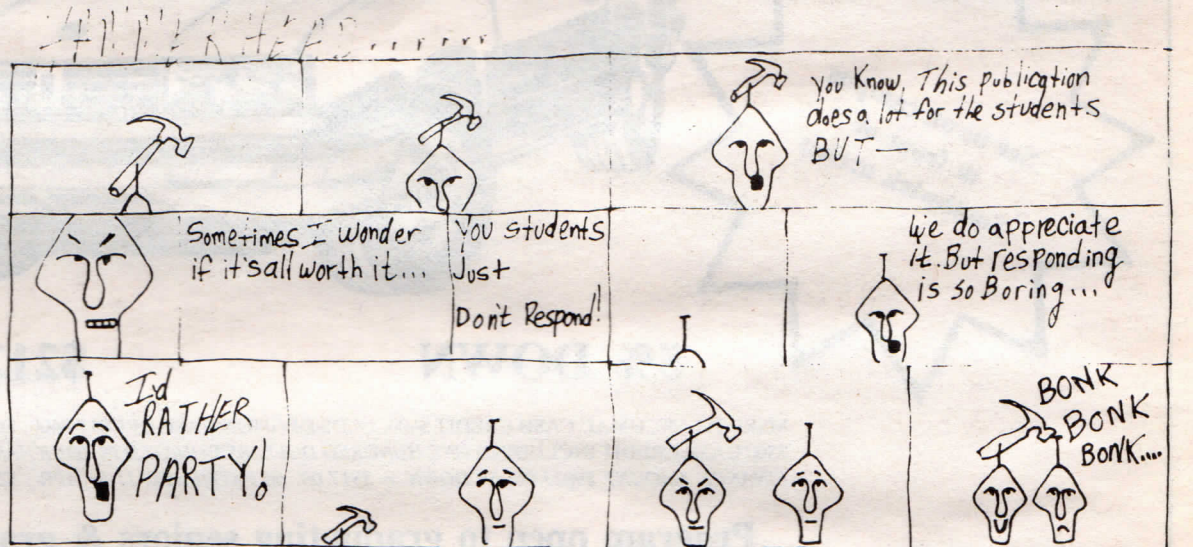 HAMMERHEAD.......
You Know, This publication
does a lot for the students
BUT—
Sometimes I wonder
if it's all worth it...
You students
Just
Don't Respond!
We do appreciate
it. But responding
is so Boring...
I'd
RATHER
PARTY!
BONK
BONK
BONK....